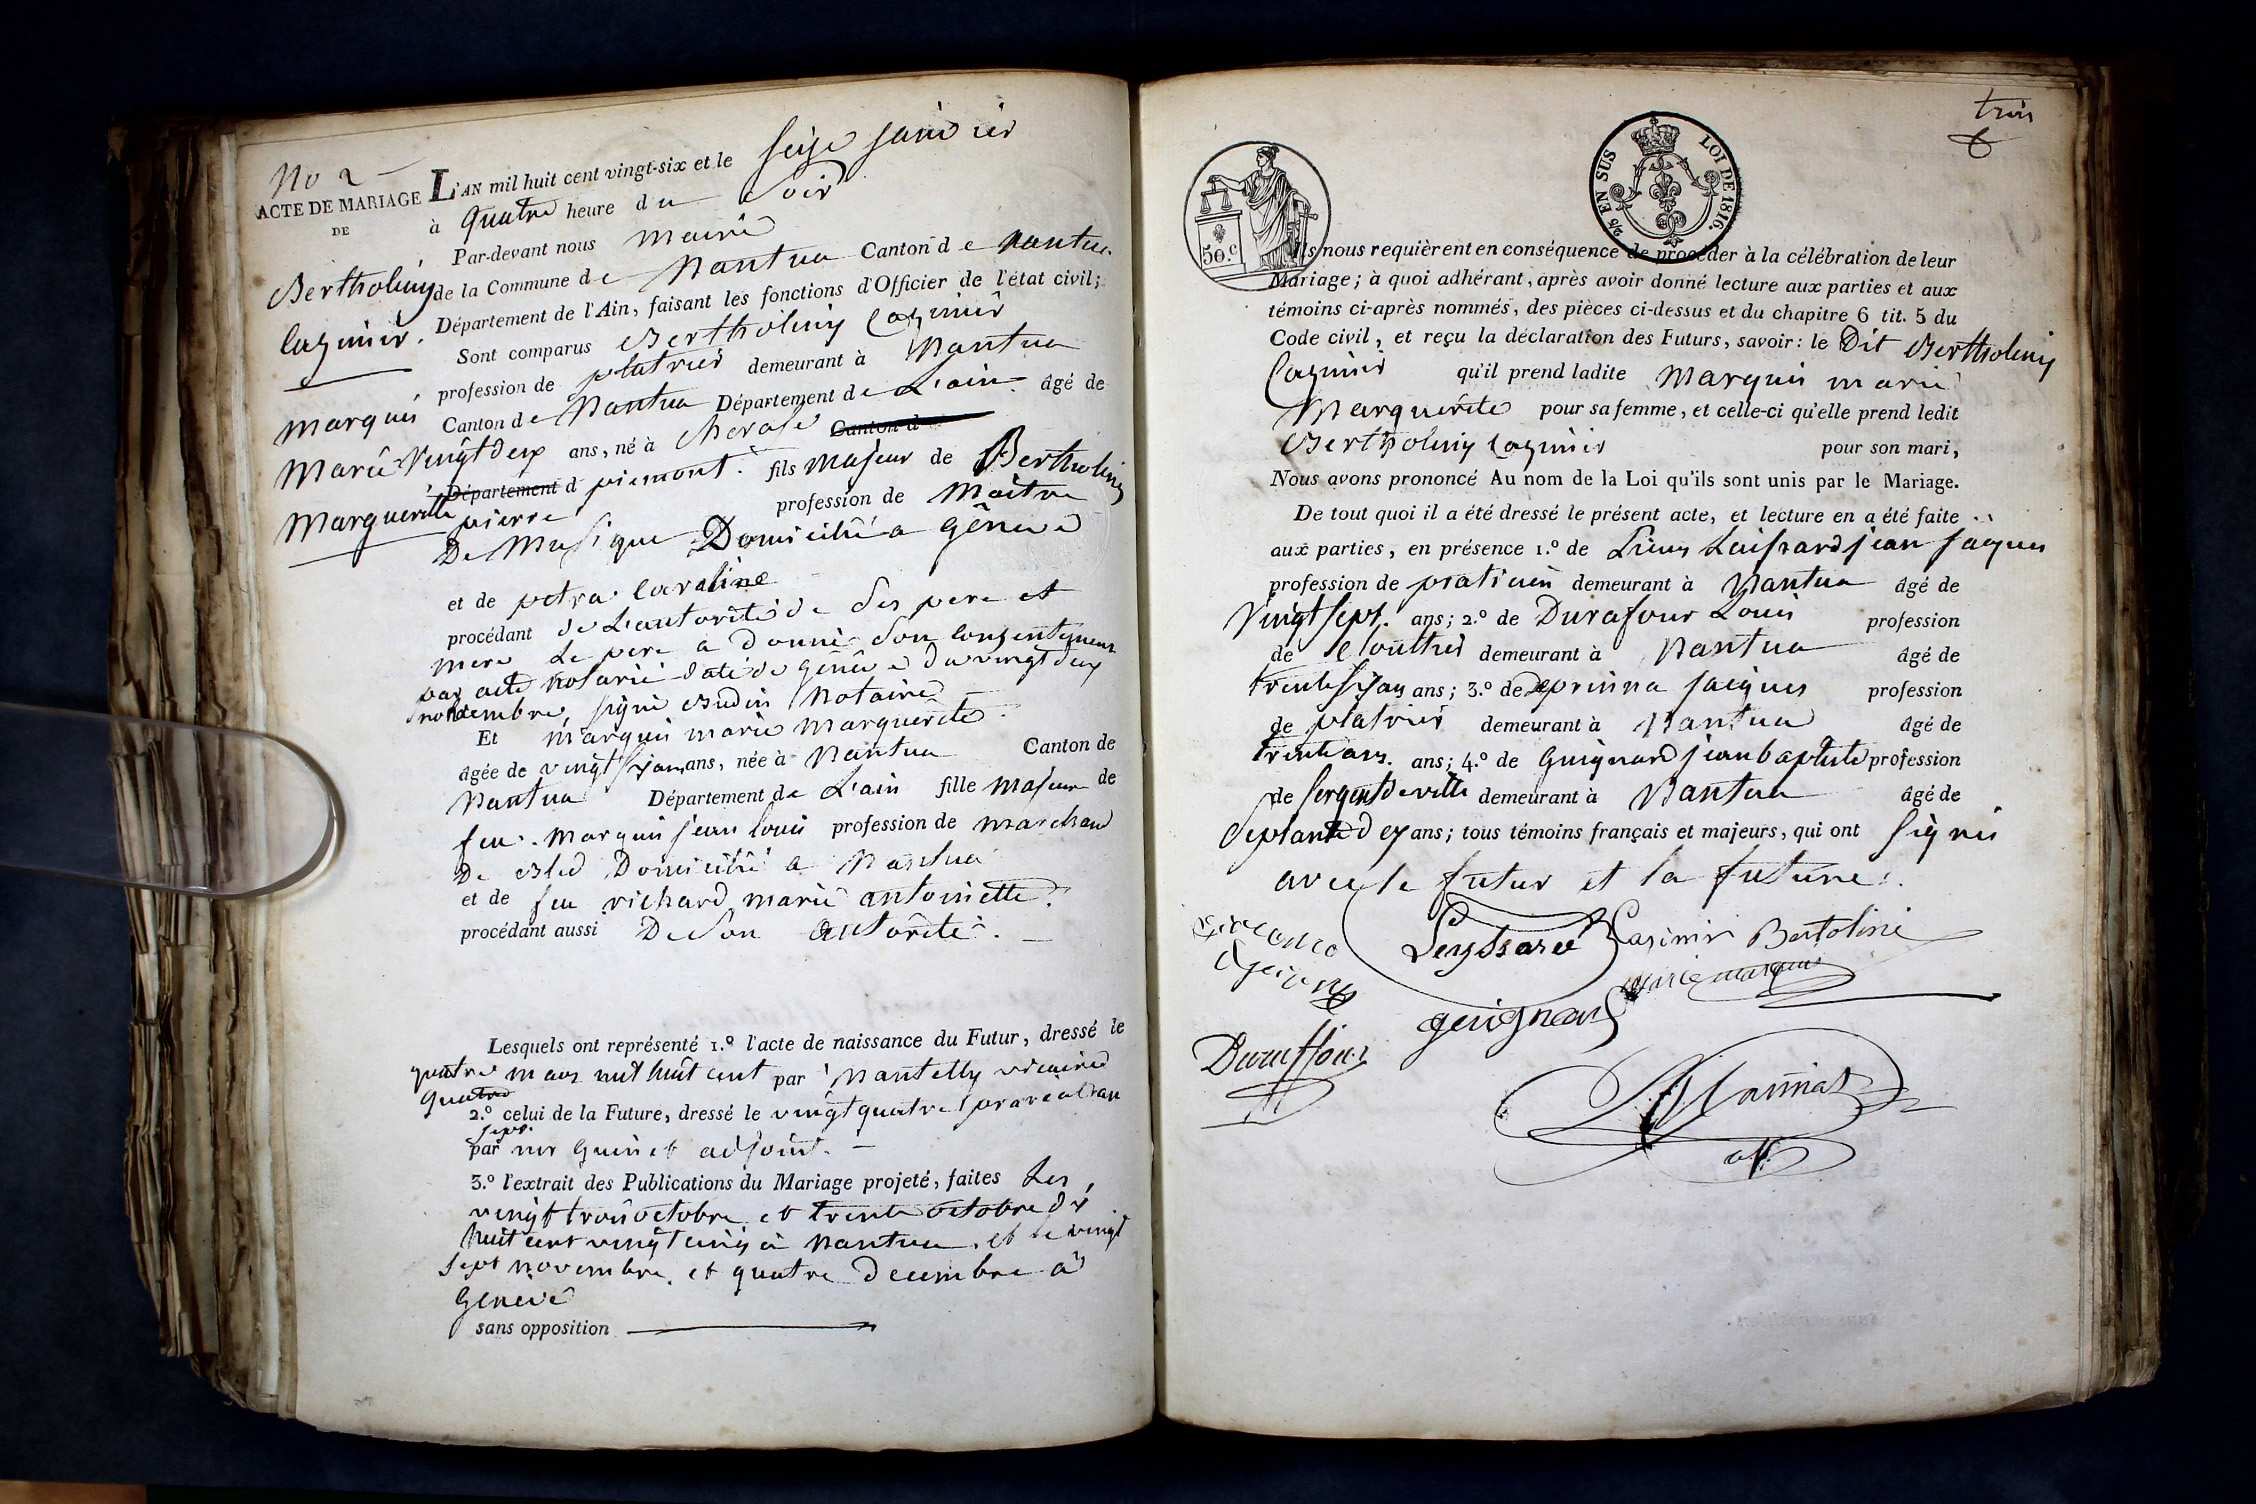 No 2
ACTE DE MARIAGE
DE
Bertholiny
Cazimir.
marquis
Marie
Margueritte
L'AN mil huit cent vingt-six et le seize janvier
à quatre heure du Soir
Par-devant nous maire
de la Commune de Nantua Canton de Nantua
Département de l'Ain, faisant les fonctions d'Officier de l'état civil;
Sont comparus Bertholiny Cazimir
profession de platrier demeurant à Nantua
Canton de Nantua Département de L'ain âgé de
Vingt deux ans, né à Canton d
Département d piemont. fils majeur de Bertholiny
pierre profession de Maitre
De Musique Domicilié a Génève
et de petra Caroline
procédant de L'autorité de Ses pere et
mere Le pere a donné Son consentement
par acte notarié daté de Génève du vingt deux
novembre, signé Budin Notaire
Et marquis marie marguerite
âgée de vingt six ans ans, née à Nantua Canton de
Nantua Département de L'ain fille majeure de
feu. marquis jean Louis profession de marchand
De Bled Domicilié a Nantua
et de feu richard marie antoinette.
procédant aussi De Son autorité.
Lesquels ont représenté 1.º l'acte de naissance du Futur, dressé le
quatre mars mil huit cent par Nantelly vicaire
quatre
2.º celui de la Future, dressé le vingt quatre prareal an
sept.
par mr Guinet adjoint.
3.º l'extrait des Publications du Mariage projeté, faites Les
vingt trois octobre et trente octobre dix
huit cent vingt cinq a Nantua. et le vingt
Sept novembre. et quatre decembre à
Génève
sans opposition
trois
50. C
2/5 EN SUS
LOI DE 1816.
Ils nous requièrent en conséquence de procéder à la célébration de leur
Mariage; à quoi adhérant, après avoir donné lecture aux parties et aux
témoins ci-après nommés, des pièces ci-dessus et du chapitre 6 tit. 5 du
Code civil, et reçu la déclaration des Futurs, savoir: le Dit Bertholiny
Cazimir qu'il prend ladite Marquis marie
Marguerite pour sa femme, et celle-ci qu'elle prend ledit
Bertholiny Cazimir pour son mari,
Nous avons prononcé Au nom de la Loi qu'ils sont unis par le Mariage.
De tout quoi il a été dressé le présent acte, et lecture en a été faite
aux parties, en présence 1.º de jean Jaques
profession de praticien demeurant à Nantua âgé de
Vingt Sept. ans; 2.º de Durafour Louis profession
de Cloutier demeurant à Nantua âgé de
trente six ans ans; 3.º de Jacques profession
de platrier demeurant à Nantua âgé de
trente ans. ans; 4.º de Guignard jean baptiste profession
de Sergent de ville demeurant à Nantua âgé de
Septante dex ans; tous témoins français et majeurs, qui ont Signés
avec le futur et la future.
Leyssard
Casimir Bertolini
marie marquis
guignard
Duraffour